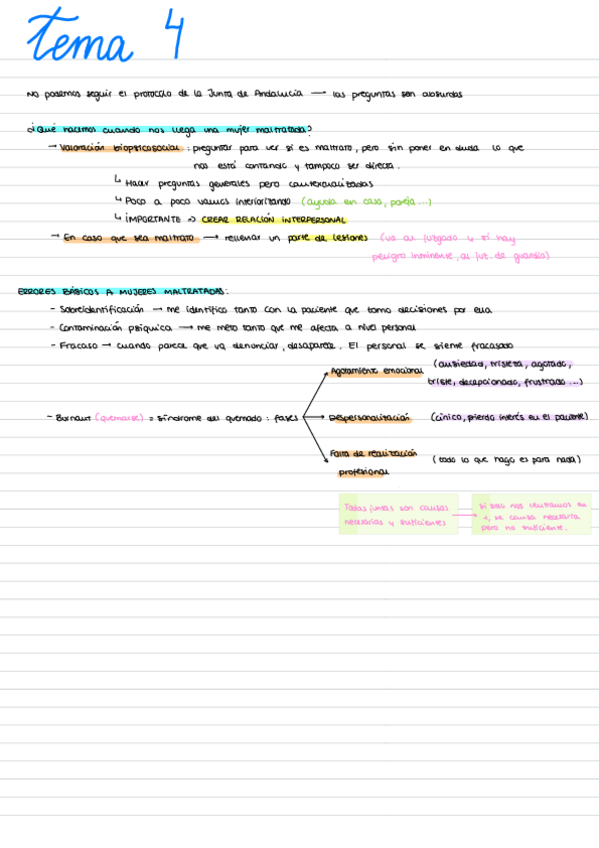 tema 4
No podemos seguir el protocolo de la Junta de Andalucía → las preguntas son absurdas
¿Qué hacemos cuando nos llega una mujer maltratada?
→ Valoración biopsicosocial : preguntar para ver si es maltrato, pero sin poner en duda lo que
nos está contando y tampoco ser directa.
↳ Hacer preguntas generales pero contextualizadas
↳ Poco a poco vamos interiorizando (ayuda en casa, pareja...)
↳ IMPORTANTE => CREAR RELACIÓN INTERPERSONAL
→ En caso que sea maltrato → rellenar un parte de lesiones (va al juzgado y si hay
peligro inminente, al juz. de guardia)
ERRORES BÁSICOS A MUJERES MALTRATADAS:
- Sobreidentificación → me identifico tanto con la paciente que tomo decisiones por ella
- Contaminación psíquica → me meto tanto que me afecta a nivel personal
- Fracaso → cuando parece que va denunciar, desaparece. El personal se siente fracasado
Agotamiento emocional (ansiedad, tristeza, agotado,
triste, decepcionado, frustrado ...)
- Burnout (quemarse) = síndrome del quemado : fases
Despersonalización (cínico, pierdo interés en el paciente)
Falta de realización
profesional (todo lo que hago es para nada)
Todas juntas son causas
necesarias y suficientes
→ si solo nos centramos en
1, es causa necesaria
pero no suficiente.